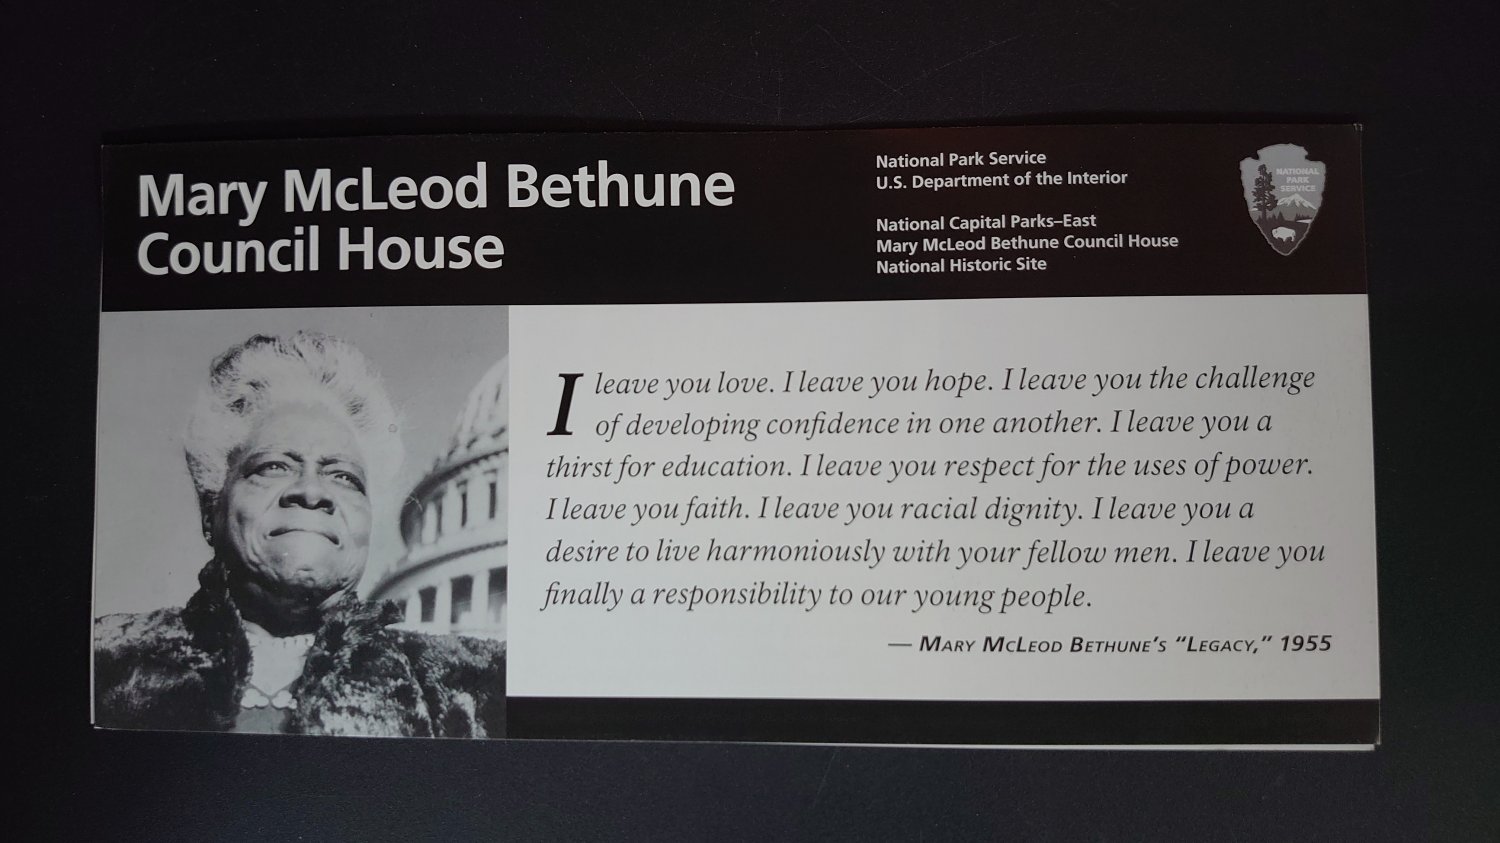 Mary McLeod Bethune
Council House
National Park Service
U.S. Department of the Interior
National Capital Parks–East
Mary McLeod Bethune Council House
National Historic Site
NATIONAL
PARK
SERVICE
I leave you love. I leave you hope. I leave you the challenge
of developing confidence in one another. I leave you a
thirst for education. I leave you respect for the uses of power.
I leave you faith. I leave you racial dignity. I leave you a
desire to live harmoniously with your fellow men. I leave you
finally a responsibility to our young people.
— Mary McLeod Bethune's “Legacy,” 1955